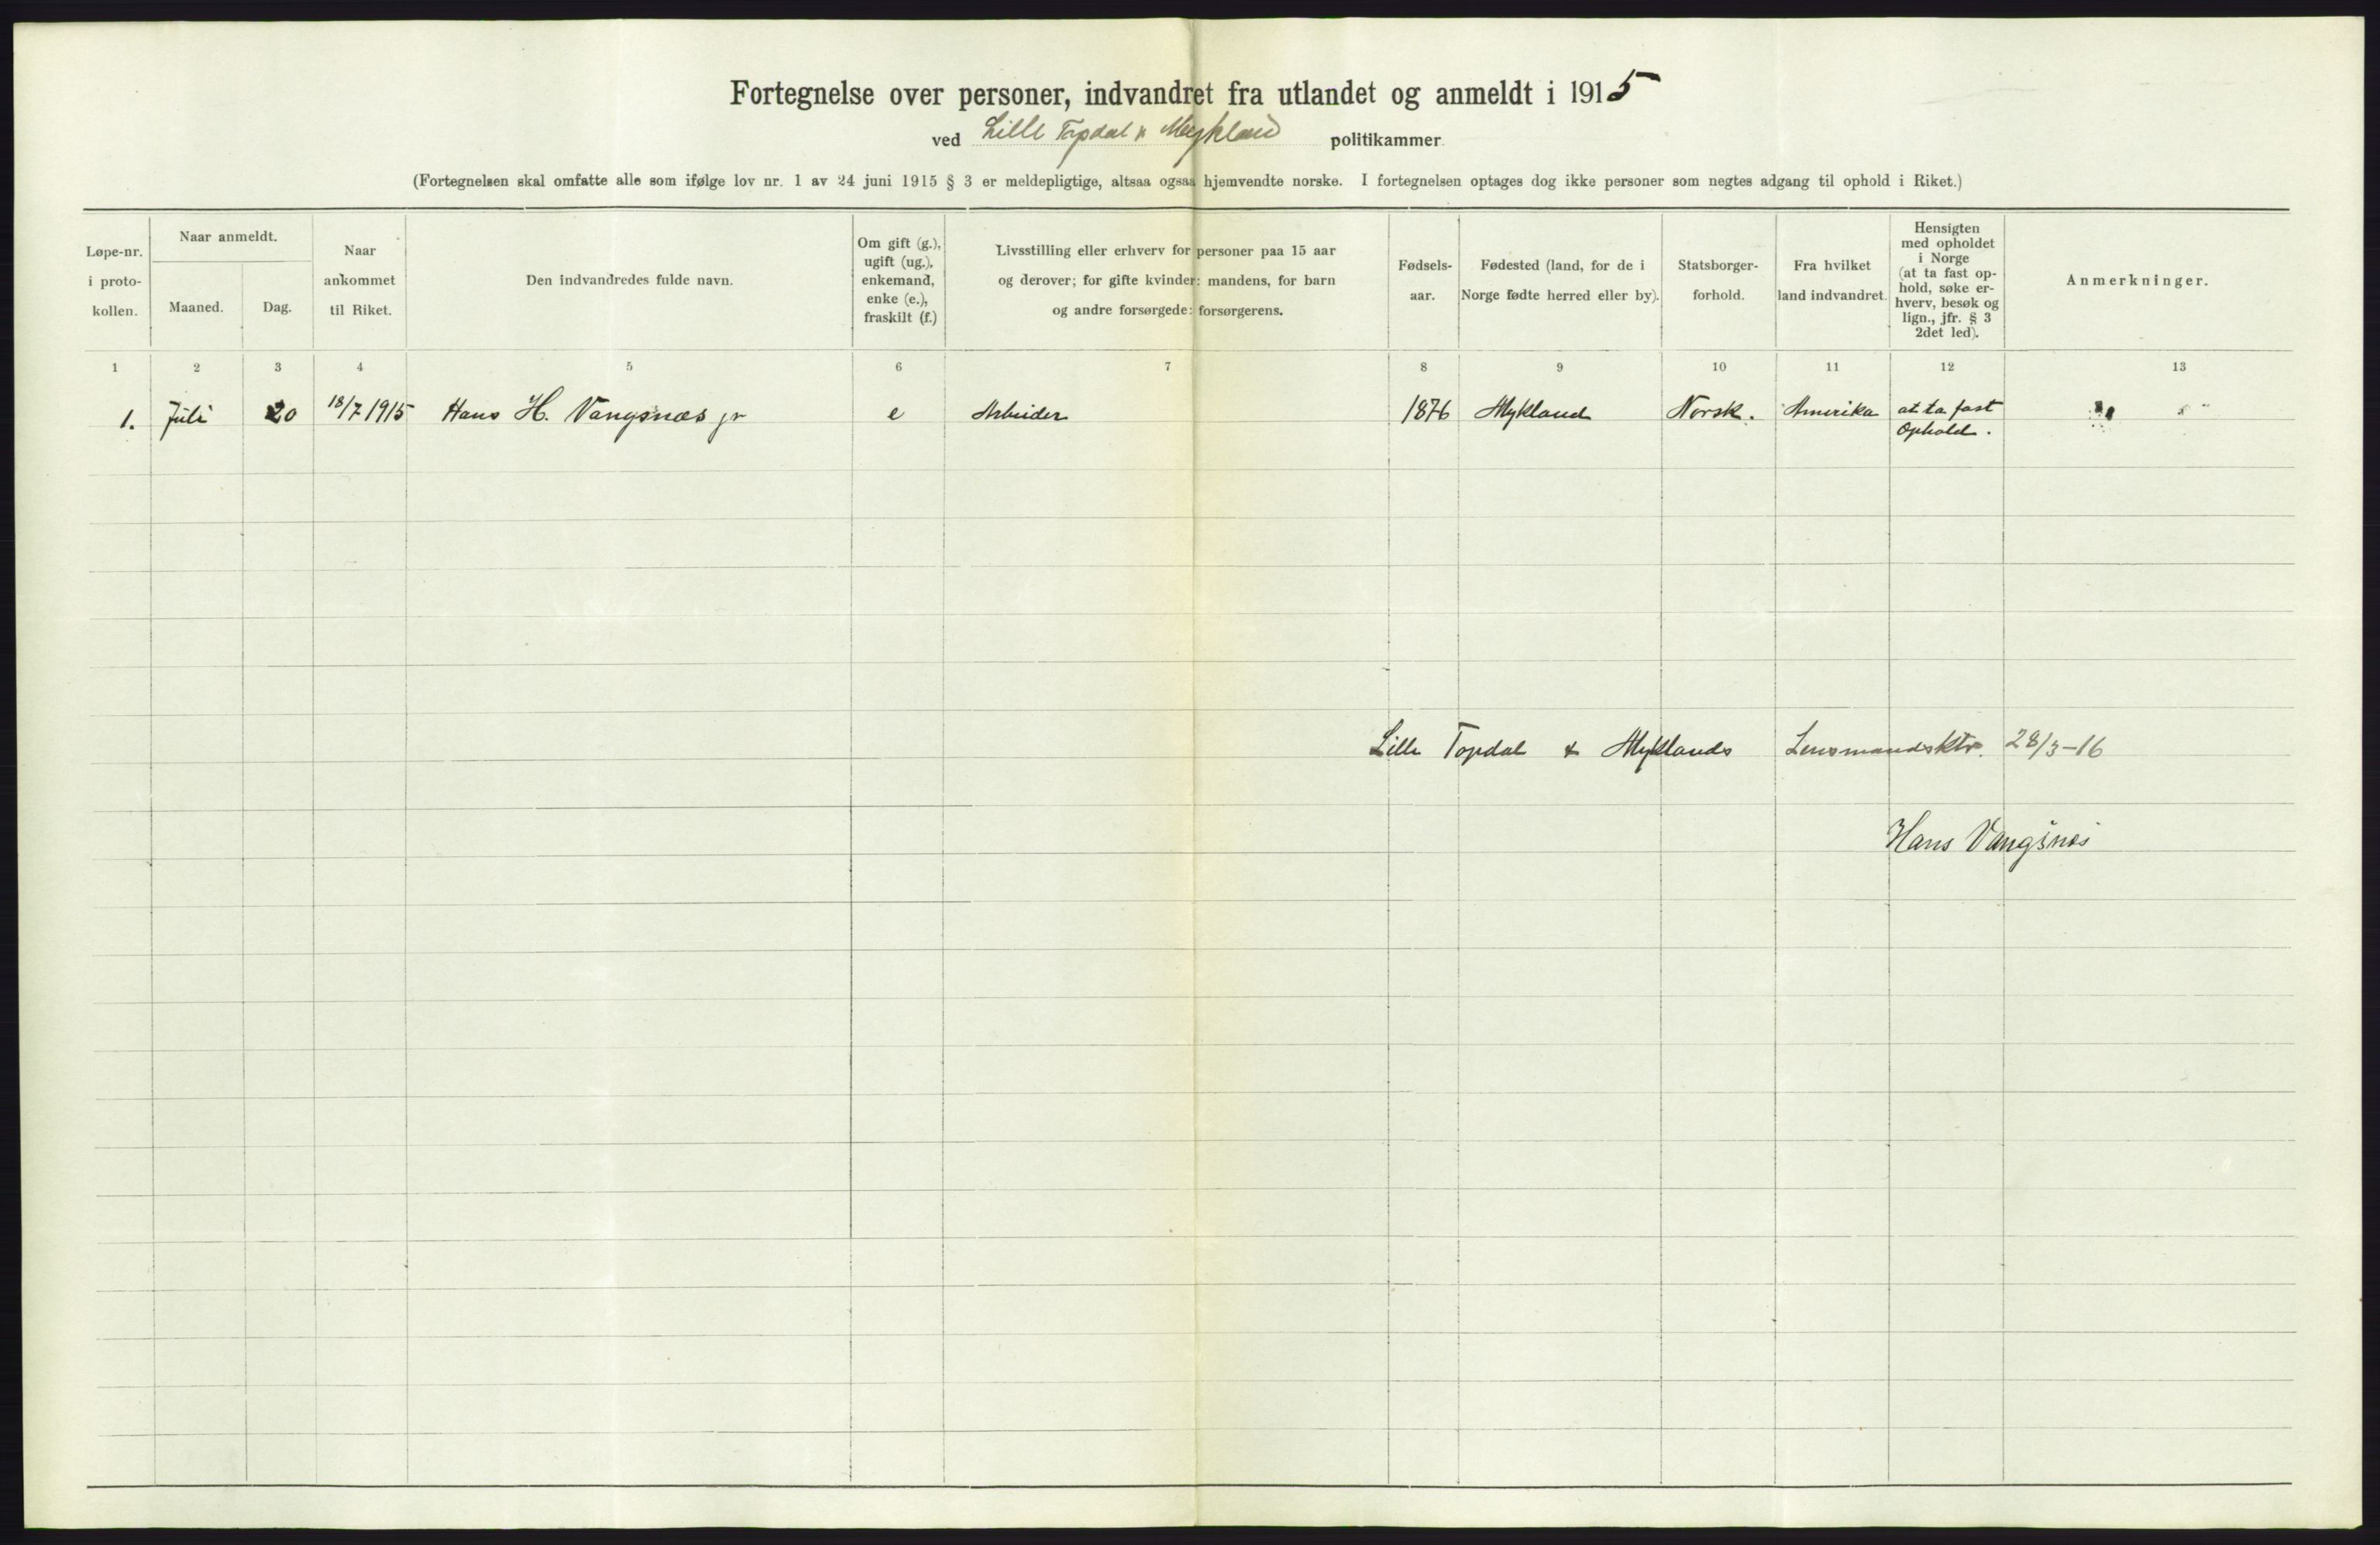 Fortegnelse over personer, indvandret fra utlandet og anmeldt i 1915
ved Lille Topdal & Mykland politikammer.
(Fortegnelsen skal omfatte alle som ifølge lov nr. 1 av 24 juni 1915 § 3 er meldepligtige, altsaa ogsaa hjemvendte norske. I fortegnelsen optages dog ikke personer som negtes adgang til ophold i Riket.)
Løpe-nr.
i proto-
kollen.
Naar anmeldt.
Maaned.
Dag.
Naar
ankommet
til Riket.
Den indvandredes fulde navn.
Om gift (g.),
ugift (ug.),
enkemand,
enke (e.),
fraskilt (f.)
Livsstilling eller erhverv for personer paa 15 aar
og derover; for gifte kvinder: mandens, for barn
og andre forsørgede: forsørgerens.
Fødsels-
aar.
Fødested (land, for de i
Norge fødte herred eller by).
Statsborger-
forhold.
Fra hvilket
land indvandret.
Hensigten
med opholdet
i Norge
(at ta fast op-
hold, søke er-
hverv, besøk og
lign., jfr. § 3
2det led).
Anmerkninger.
1 2 3 4 5 6 7 8 9 10 11 12 13
1. Juli 20 18/7 1915 Hans H. Vangsnæs jr e Arbeider 1876 Mykland Norsk. Amerika at ta fast
Ophold.
Lille Topdal & Myklands Lensmandsktr. 28/3-16
Hans Vangsnes